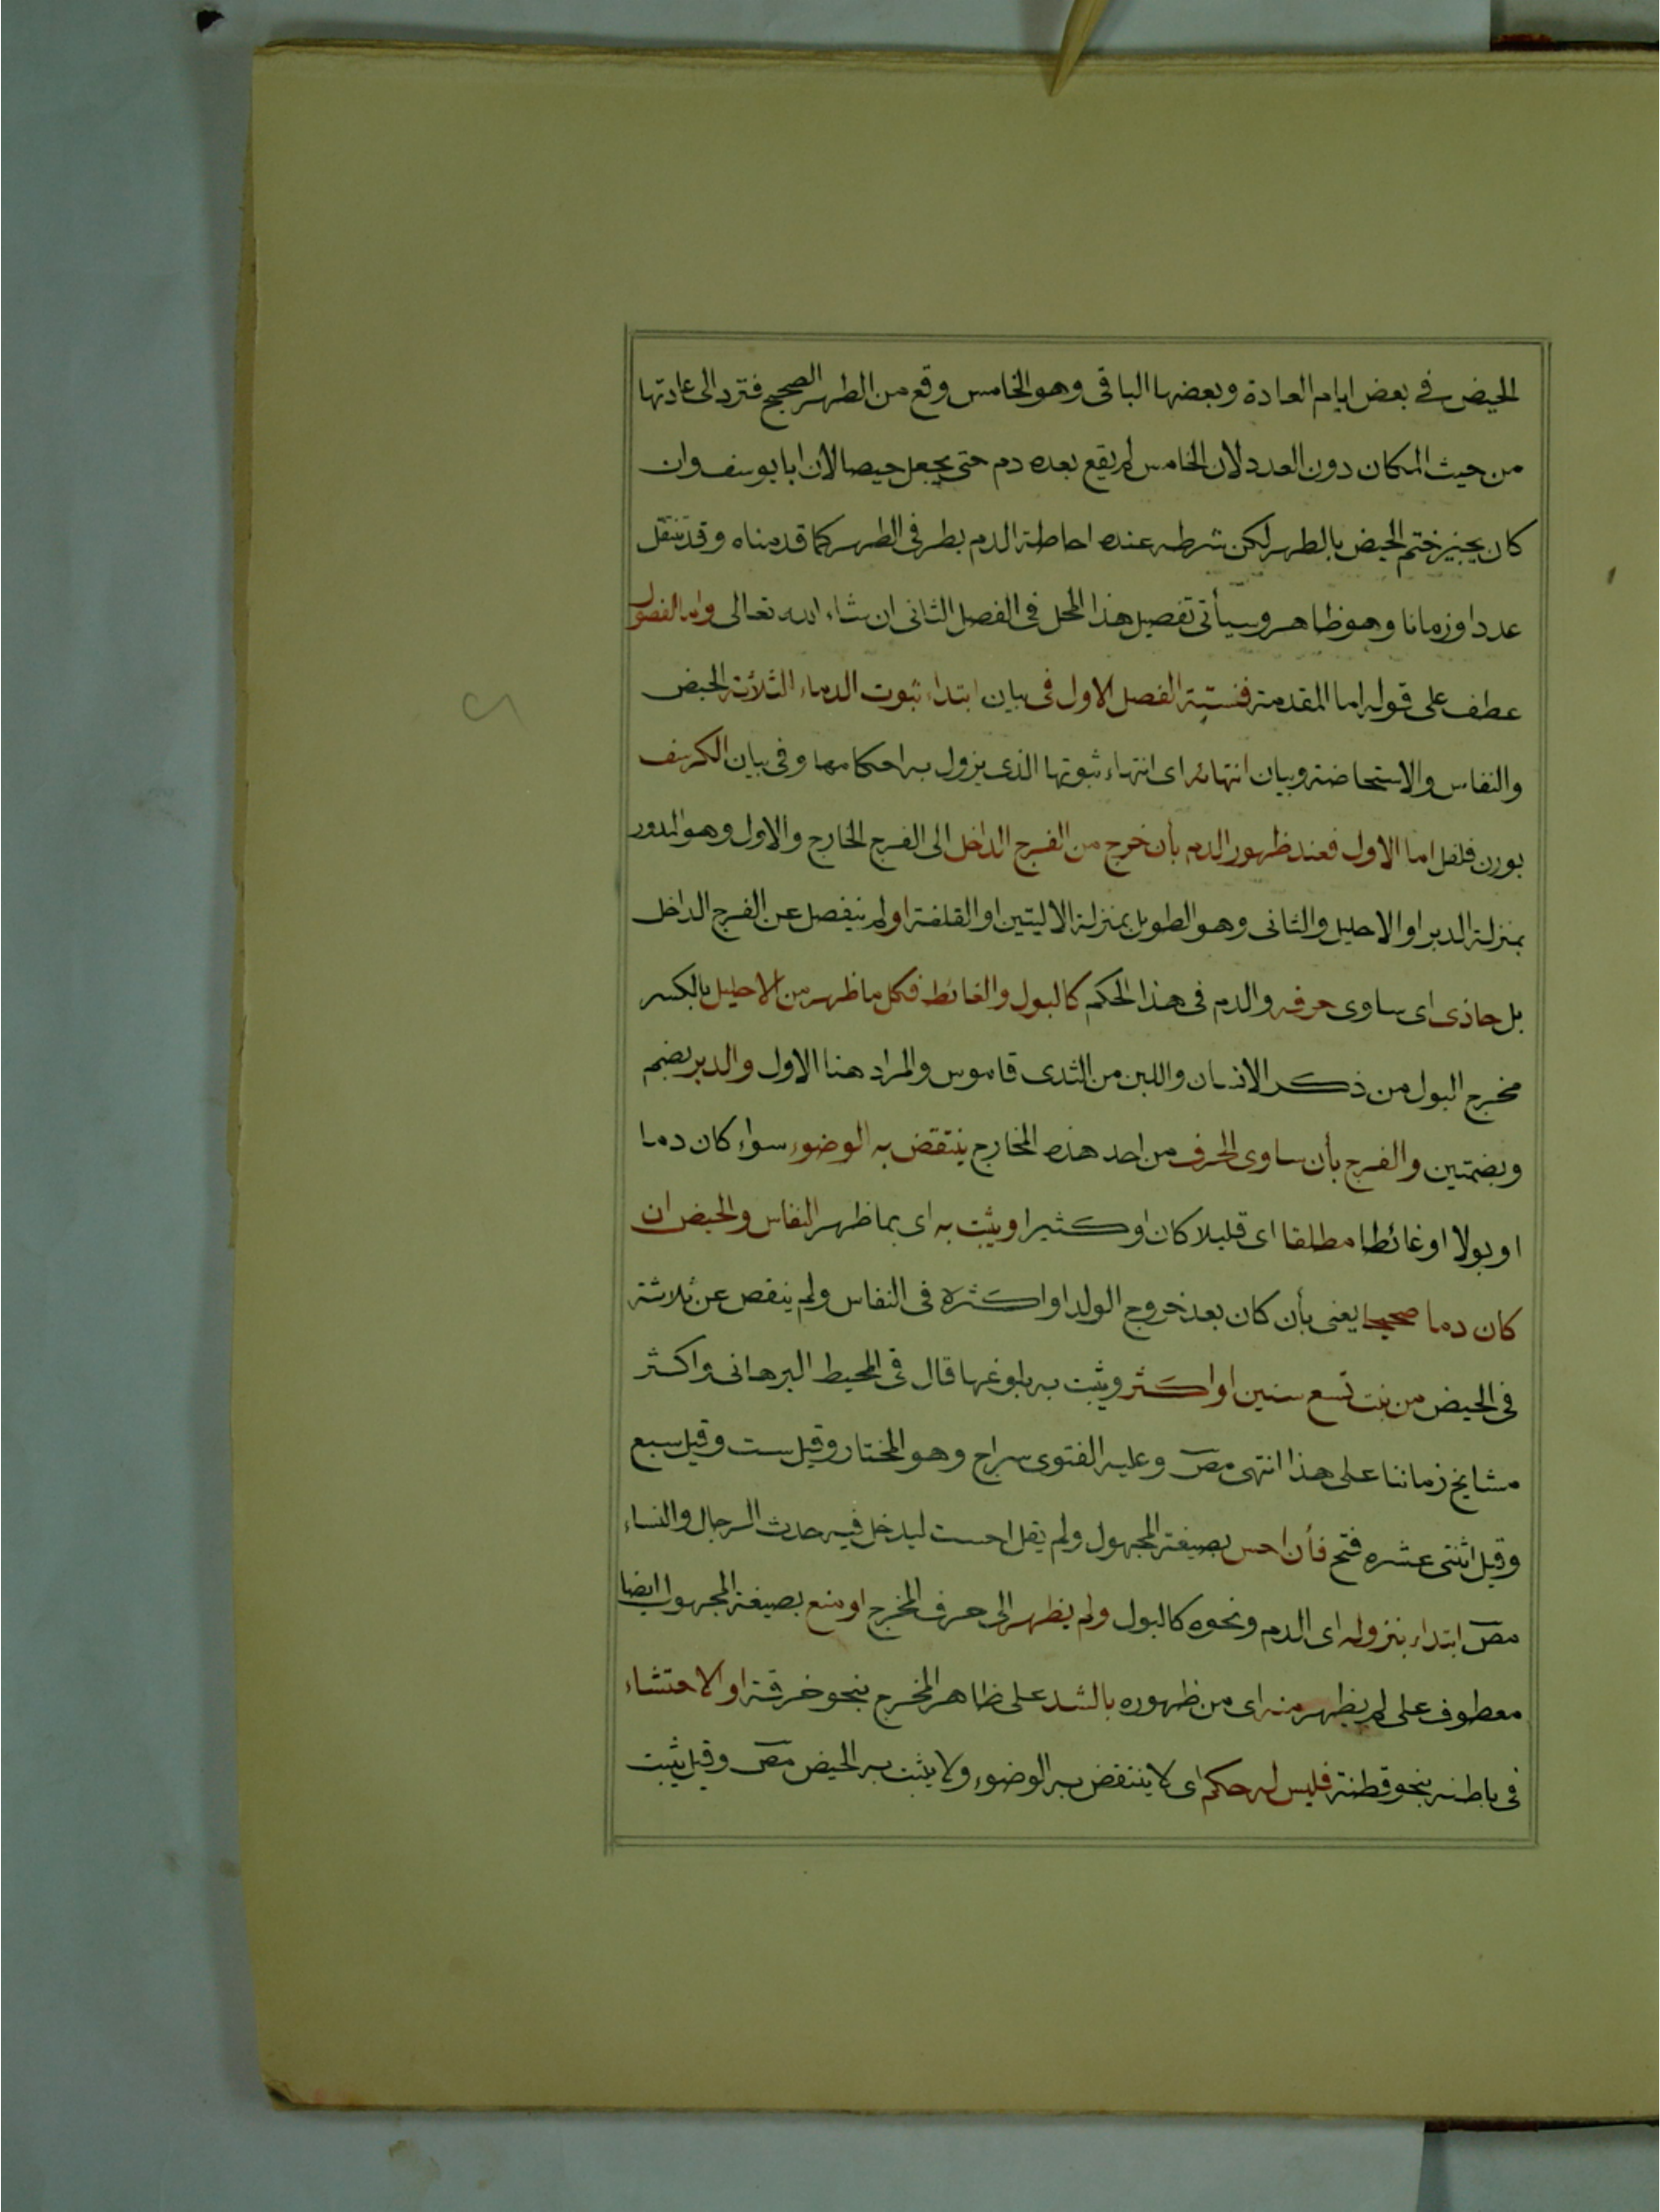 الحيض في بعض ايام العادة وبعضها الباقى وهو الخامس وقع من الطهر الصحيح فترد الى عادتها
من حيث المكان دون العدد لان الخامس لم يقع بعده دم حتى يجعل حيضا لان ابا يوسف وان
كان يجيز ختم الحيض بالطهر لكن شرطه عنده احاطة الدم بطرفى الطهر كما قدمناه وقد ينتقل
عددا وزمانا وهو ظاهر وسيأتى تفصيل هذا المحل فى الفصل الثانى ان شاء الله تعالى واما الفصول
عطف على قوله اما المقدمة فستة الفصل الاول فى بيان ابتداء ثبوت الدماء الثلاثة الحيض
والنفاس والاستحاضة وبيان انتهائه اى انتهاء ثبوتها الذى يزول به احكامها وفى بيان الكرسف
بوزن فلفل اما الاول فعند ظهور الدم بأن خرج من الفرج الداخل الى الفرج الخارج والاول وهو المدور
بمنزلة الدبر او الاحليل والثانى وهو الطويل بمنزلة الاليتين او القلفة او لم ينفصل عن الفرج الداخل
بل حاذى اى ساوى حرفه والدم فى هذا الحكم كالبول والغائط فكل ما ظهر من الاحليل بالكسر
مخرج البول من ذكر الانسان واللبن من الثدى قاموس والمراد هنا الاول والدبر بضم
وبضمتين والفرج بأن ساوى الحرف من احد هذه المخارج ينتقض به الوضوء سواء كان دما
او بولا او غائطا مطلقا اى قليلا كان او كثيرا ويثبت به اى بما ظهر النفاس والحيض ان
كان دما صحيحا يعنى بأن كان بعد خروج الولد او اكثره فى النفاس ولم ينقص عن ثلاثة
فى الحيض من بنت تسع سنين او اكثر ويثبت به بلوغها قال فى المحيط البرهانى واكثر
مشايخ زماننا على هذا انتهى مص وعليه الفتوى سراج وهو المختار وقيل ست وقيل سبع
وقيل اثنتى عشره فتح فأن احس بصيغة المجهول ولم يقل احست ليدخل فيه حدث الرجال والنساء
مص ابتداء بنزوله اى الدم ونحوه كالبول ولم يظهر الى حرف المخرج او منع بصيغة المجهول ايضا
معطوف على لم يظهر منه اى من ظهوره بالشد على ظاهر المخرج بنحو خرقة او الاحتشاء
فى باطنه بنحو قطنة فليس له حكم اى لا ينتقض به الوضوء ولا يثبت به الحيض مص وقيل يثبت